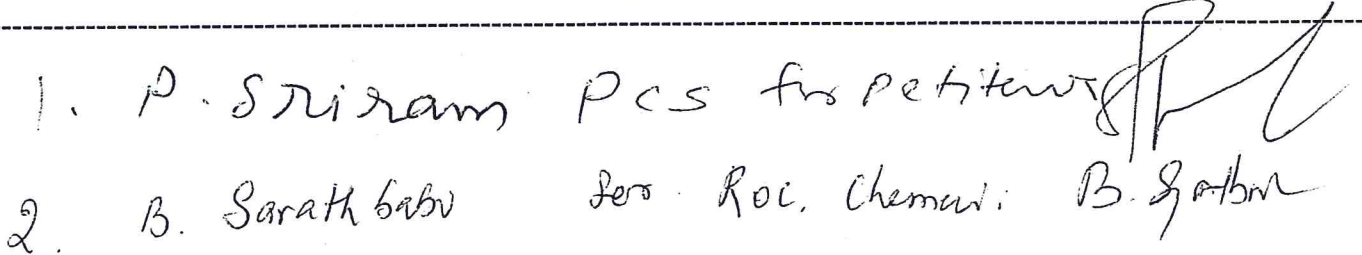 1. P. Sriram PCS for Petitioners
2. B. Sarath babu for ROC, Chennai. B. Sarathbabu